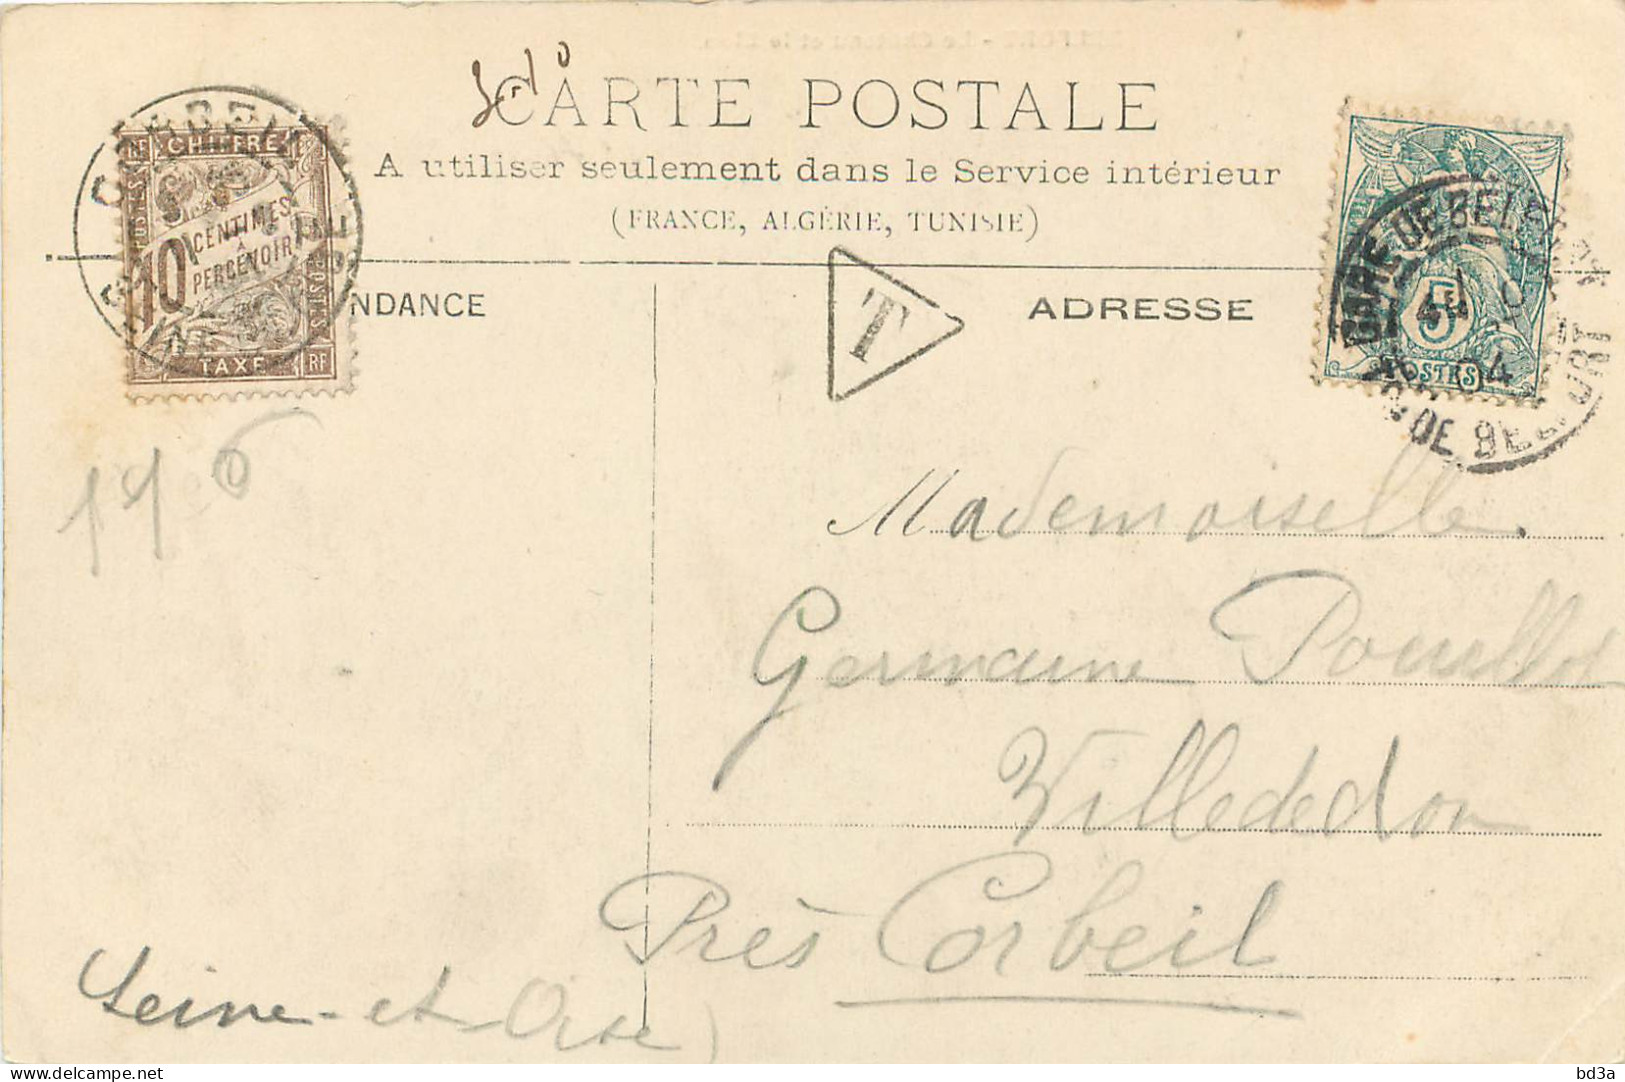 CARTE POSTALE
A utiliser seulement dans le Service intérieur
(FRANCE, ALGÉRIE, TUNISIE)
NDANCE
ADRESSE
RF CHIFFRE
POSTES
10 CENTIMES
À
PERCEVOIR
POSTES
TAXE RF
T
GARE DE BELFORT
04
DE BELFORT
5F
POSTES
116
Mademoiselle.
Germaine Pouillot
Villededon
Près Corbeil
Seine-et-Oise)
delcampe.net
bd3a